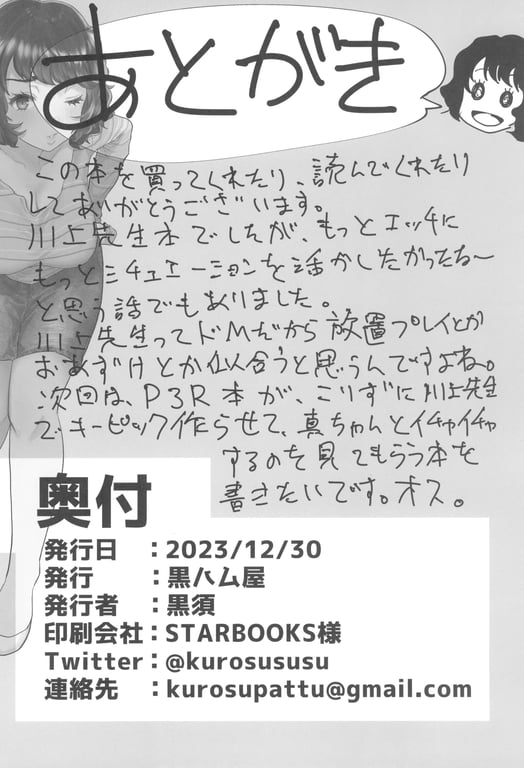 あとがき
この本を買ってくれたり、読んでくれたり
してありがとうございます。
川上先生本でしたが、もっとエッチに
もっとシチュエーションを活かしたかったな〜
と思う話でもありました。
川上先生ってドMだから放置プレイとか
おあずけとか似合うと思うんですよね。
次回は、P3R本か、こりずに川上先生
でキーピック作らせて、真ちゃんとイチャイチャ
するのを見てもらう本を
書きたいです。オス。
奥付
発行日 :2023/12/30
発行 :黒ハム屋
発行者 :黒須
印刷会社:STARBOOKS様
Twitter:@kurosususu
連絡先 :kurosupattu@gmail.com